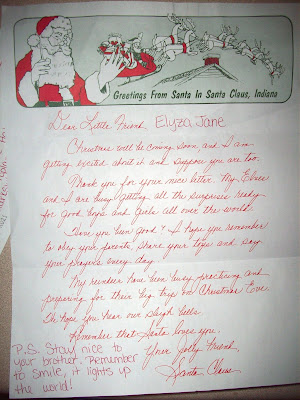 Greetings From Santa In Santa Claus, Indiana
Dear Little Friend, Elyza Jane
Christmas will be coming soon, and I am
getting excited about it and suppose you are too.
Thank you for your nice letter. My Elves
and I are busy getting all the surprises ready
for good boys and girls all over the world.
Have you been good? I hope you remember
to obey your parents, share your toys and say
your prayers every day.
My reindeer have been busy practicing and
preparing for their big trip on Christmas Eve.
We hope you hear our sleigh bells.
Remember that Santa loves you.
Your Jolly Friend
Santa Claus
P.S. Stay nice to
your brother. Remember
to smile, it lights up
the world!